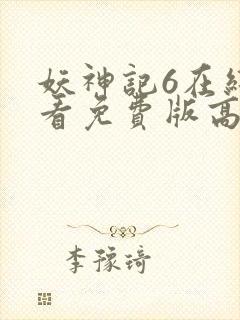 妖神記6在線
看免費版高
李豫琦